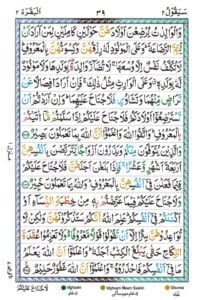 سَيَقُوۡلُ ٢
٣٩
اَلۡبَقَرَة ٢
وَالۡوَالِدٰتُ يُرۡضِعۡنَ اَوۡلَادَهُنَّ حَوۡلَيۡنِ كَامِلَيۡنِ لِمَنۡ اَرَادَ اَنۡ
يُّتِمَّ الرَّضَاعَةَ ؕ وَعَلَى الۡمَوۡلُوۡدِ لَهٗ رِزۡقُهُنَّ وَكِسۡوَتُهُنَّ بِالۡمَعۡرُوۡفِ ؕ
لَا تُكَلَّفُ نَفۡسٌ اِلَّا وُسۡعَهَا ۚ لَا تُضَآرَّ وَالِدَةٌ ۢ بِوَلَدِهَا وَلَا مَوۡلُوۡدٌ
لَّهٗ بِوَلَدِهٖ ۚ وَعَلَى الۡوَارِثِ مِثۡلُ ذٰلِكَ ۚ فَاِنۡ اَرَادَا فِصَالًا عَنۡ
تَرَاضٍ مِّنۡهُمَا وَتَشَاوُرٍ فَلَا جُنَاحَ عَلَيۡهِمَا ؕ وَاِنۡ اَرَدْتُّمۡ اَنۡ
تَسۡتَرۡضِعُوۡٓا اَوۡلَادَكُمۡ فَلَا جُنَاحَ عَلَيۡكُمۡ اِذَا سَلَّمۡتُمۡ مَّآ اٰتَيۡتُمۡ
بِالۡمَعۡرُوۡفِ ؕ وَاتَّقُوا اللّٰهَ وَاعۡلَمُوۡٓا اَنَّ اللّٰهَ بِمَا تَعۡمَلُوۡنَ بَصِيۡرٌ
وَالَّذِيۡنَ يُتَوَفَّوۡنَ مِنۡكُمۡ وَيَذَرُوۡنَ اَزۡوَاجًا يَّتَرَبَّصۡنَ بِاَنۡفُسِهِنَّ
اَرۡبَعَةَ اَشۡهُرٍ وَّعَشۡرًا ۚ فَاِذَا بَلَغۡنَ اَجَلَهُنَّ فَلَا جُنَاحَ عَلَيۡكُمۡ
فِيۡمَا فَعَلۡنَ فِىۡٓ اَنۡفُسِهِنَّ بِالۡمَعۡرُوۡفِ ؕ وَاللّٰهُ بِمَا تَعۡمَلُوۡنَ خَبِيۡرٌ
وَلَا جُنَاحَ عَلَيۡكُمۡ فِيۡمَا عَرَّضۡتُمۡ بِهٖ مِنۡ خِطۡبَةِ النِّسَآءِ اَوۡ
اَکۡنَنۡتُمۡ فِىۡٓ اَنۡفُسِكُمۡ ؕ عَلِمَ اللّٰهُ اَنَّكُمۡ سَتَذۡكُرُوۡنَهُنَّ وَلٰكِنۡ
لَّا تُوَاعِدُوۡهُنَّ سِرًّا اِلَّاۤ اَنۡ تَقُوۡلُوۡا قَوۡلًا مَّعۡرُوۡفًا ؕ وَلَا تَعۡزِمُوۡا
عُقۡدَةَ النِّکَاحِ حَتّٰى يَبۡلُغَ الۡكِتٰبُ اَجَلَهٗ ؕ وَاعۡلَمُوۡٓا اَنَّ اللّٰهَ يَعۡلَمُ
مَا فِىۡٓ اَنۡفُسِكُمۡ فَاحۡذَرُوۡهُ ؕ وَاعۡلَمُوۡٓا اَنَّ اللّٰهَ غَفُوۡرٌ حَلِيۡمٌ
Idghaam
Idghaam Meem Saakin
Ghunna
لَا جُنَاحَ عَلَيۡكُمۡ